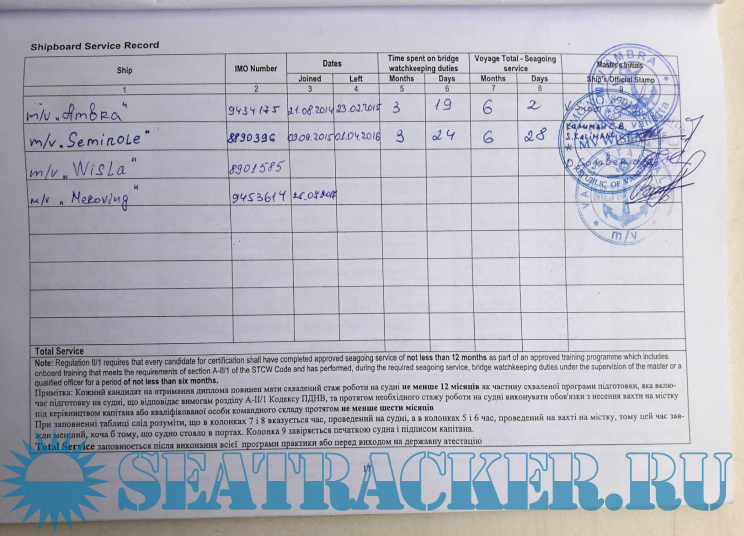 Shipboard Service Record
Ship IMO Number Dates Time spent on bridge watchkeeping duties Voyage Total - Seagoing service Master's Initials
Joined Left Months Days Months Days Ship's Official Stamp
1 2 3 4 5 6 7 8 9
m/v „Ambra" 9434175 21.08.2014 23.02.2015 3 19 6 2
m/v „Seminole" 8890396 03.09.2015 01.04.2016 3 24 6 28
m/v „Wisla" 8901585
m/v „Meroving" 9453614
Total Service
Note: Regulation II/1 requires that every candidate for certification shall have completed approved seagoing service of not less than 12 months as part of an approved training programme which includes
onboard training that meets the requirements of section A-II/1 of the STCW Code and has performed, during the required seagoing service, bridge watchkeeping duties under the supervision of the master or a
qualified officer for a period of not less than six months.
Примітка: Кожний кандидат на отримання диплома повинен мати схвалений стаж роботи на судні не менше 12 місяців як частину схваленої програми підготовки, яка вклю-
чає підготовку на судні, що відповідає вимогам розділу А-ІІ/1 Кодексу ПДНВ, та протягом необхідного стажу роботи на судні виконувати обов'язки з несення вахти на містку
під керівництвом капітана або кваліфікованої особи командного складу протягом не менше шести місяців
При заповненні таблиці слід розуміти, що в колонках 7 і 8 вказується час, проведений на судні, а в колонках 5 і 6 час, проведений на вахті на містку, тому цей час зав-
жди менший, хоча б тому, що судно стояло в портах. Колонка 9 завіряється печаткою судна і підписом капітана.
Total Service заповнюється після виконання всієї програми практики або перед виходом на державну атестацію
SEATRACKER.RU